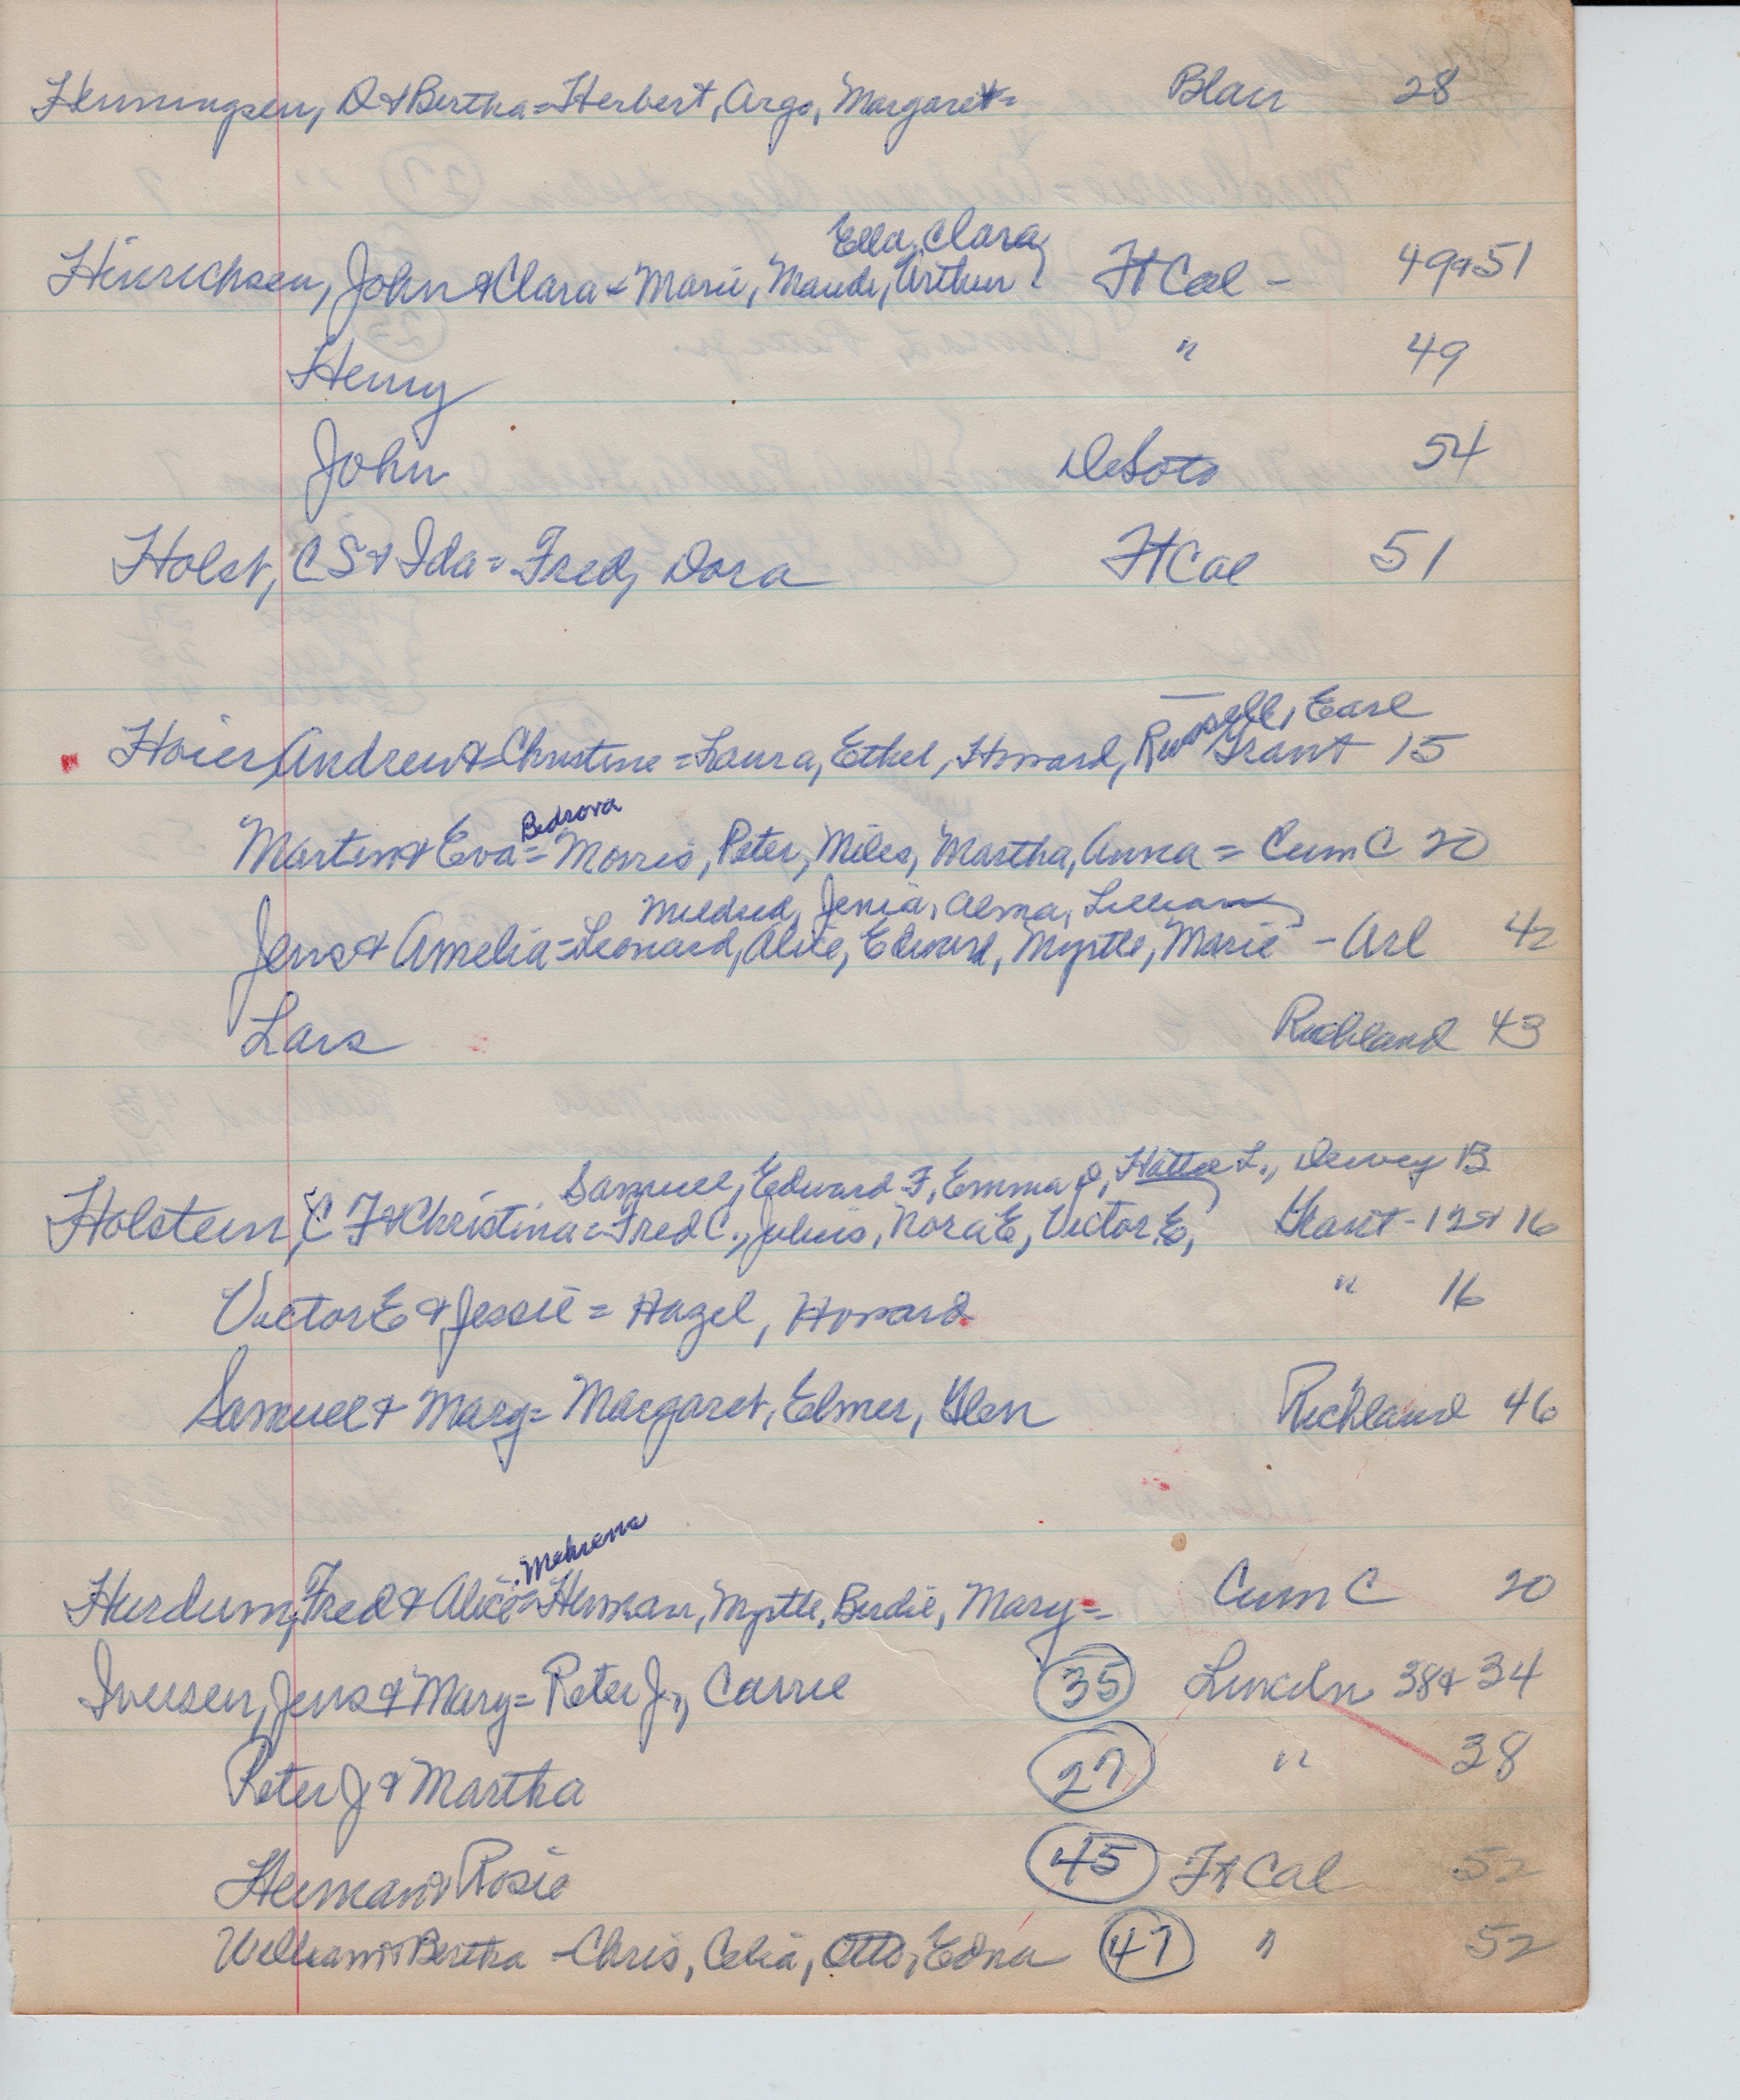 Henningsen, D & Bertha = Herbert, Argo, Margaret = Blair 28
Ella, Clara,
Hinrichsen, John & Clara = Marie, Maude, Arthur Ft Cal - 49 & 51
Henry " 49
John DeSoto 54
Holst, C S & Ida = Fred, Dora Ft Cal 51
Russell, Earl
Hoier, Andrew & Christine = Laura, Ethel, Howard, Grant 15
Bedrova
Martin & Eva = Morris, Peter, Miles, Martha, Anna = Cum C 20
Mildred, Jenia, Alma, Lillian
Jens & Amelia = Leonard, Alice, Edward, Myrtle, Marie - Arl 42
Lars Richland 43
Samuel, Edward F, Emma D, Hattie L., Dewey B
Holstein, C F & Christina = Fred C., Julius, Nora E, Victor E, Grant - 12 & 16
Victor E & Jessie = Hazel, Howard " 16
Samuel & Mary = Margaret, Elmer, Glen Richland 46
Mehrena
Hurdum, Fred & Alice = Herman, Myrtle, Birdie, Mary = Cum C 20
Iversen, Jens & Mary = Peter J., Carrie 35 Lincoln 38 & 34
Peter J & Martha 27 " 38
Herman & Rosie 45 Ft Cal 52
William & Bertha - Chris, Celia, Otto, Edna 47 " 52